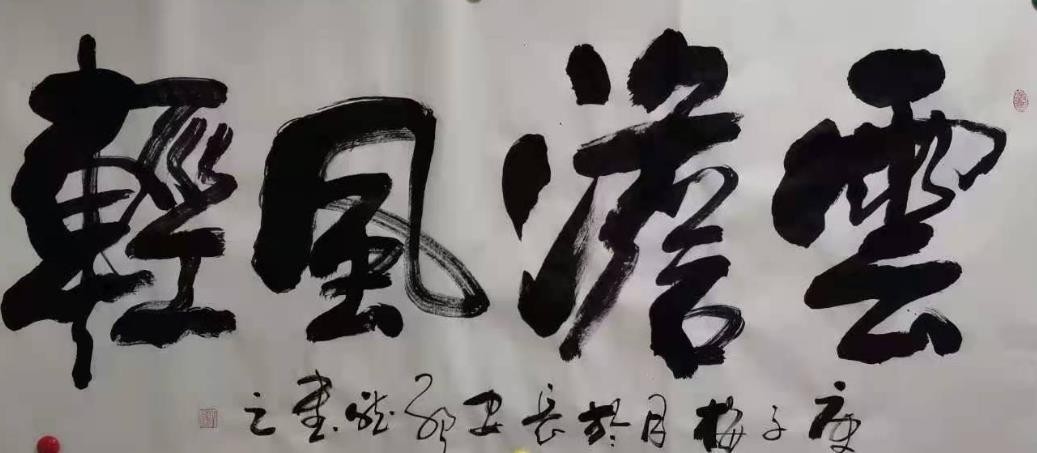 雲澹風輕
庚子梅月於長安 龍書之